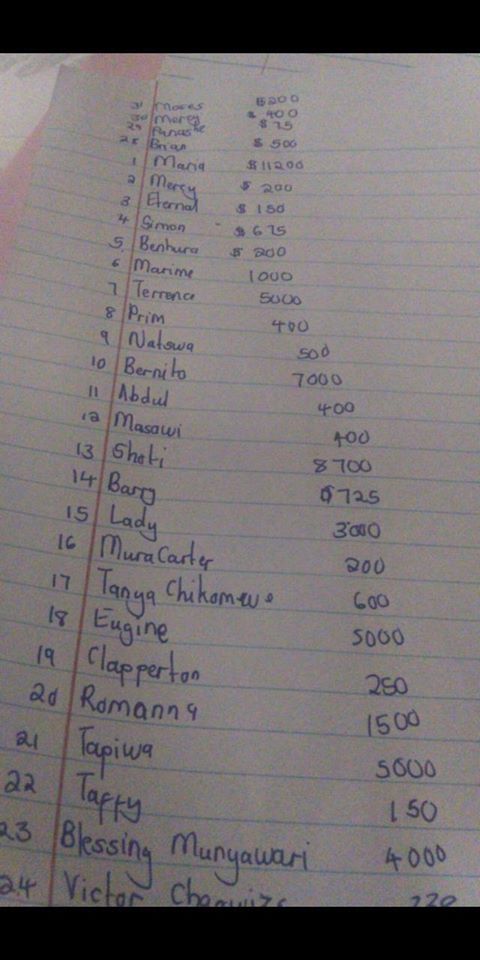 31 Moses $200
30 Mercy $400
29 Panashe $75
28 Brian $500
1 Maria $11200
2 Mercy $200
3 Eternal $150
4 Simon $675
5 Benhura $200
6 Marime 1000
7 Terrence 5000
8 Prim 400
9 Natswa 500
10 Bernito 7000
11 Abdul 400
12 Masawi 400
13 Shoti 8700
14 Barry $725
15 Lady 3000
16 MuraCarter 200
17 Tanya Chikomewe 600
18 Eugine 5000
19 Clapperton 250
20 Romanna 1500
21 Tapiwa 5000
22 Taffy 150
23 Blessing Munyawari 4000
24 Victor